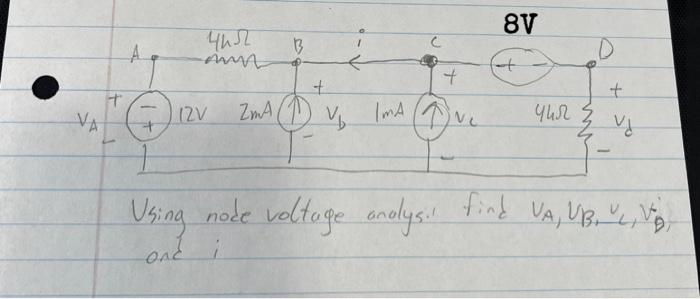 8V
4kΩ i
A B C + - D
+ - + 12V 2mA + Vb - 1mA + Vc - 4kΩ + Vd -
VA
Using node voltage analysis find VA, VB, Vc, VD,
and i